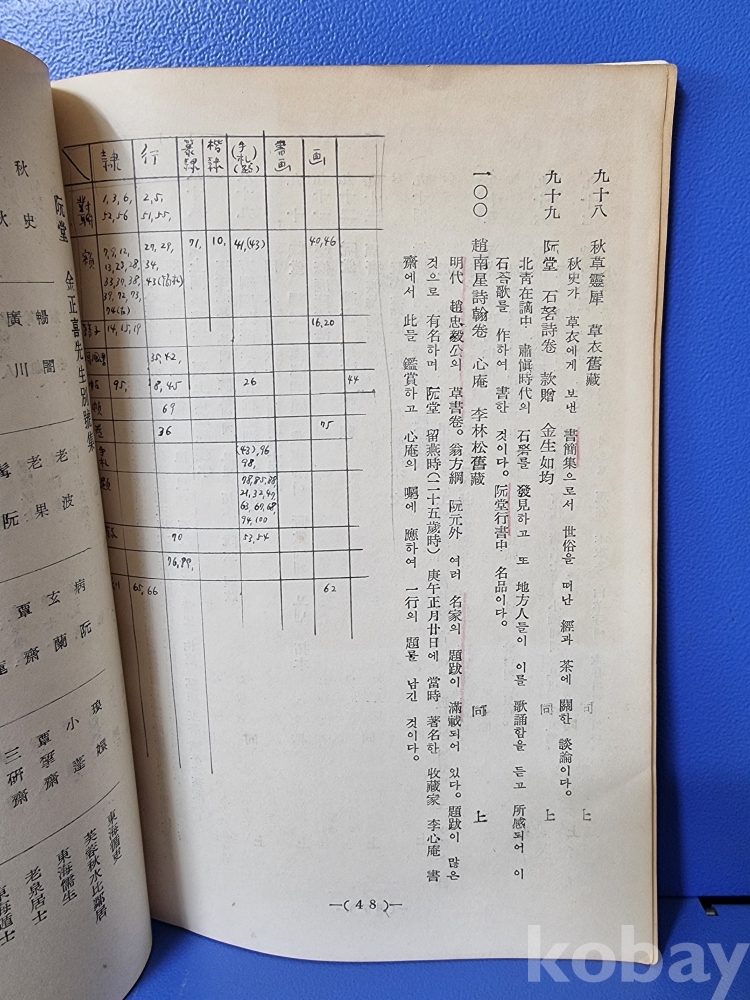 九十八 秋草靈犀 草衣舊藏 同 上
秋史가 草衣에게 보낸 書簡集으로서 世俗을 떠난 經과 茶에 關한 談論이다。
九十九 阮堂 石砮詩卷 款贈 金生如均 同 上
北靑在謫中 肅愼時代의 石砮를 發見하고 또 地方人들이 이를 歌誦함을 듣고 所感되어 이
石砮歌를 作하여 書한 것이다。阮堂行書中 名品이다。
一〇〇 趙南星詩翰卷 心庵 李林松舊藏 同 上
明代 趙忠毅公의 草書卷。翁方綱 阮元外 여러 名家의 題跋이 滿載되어 있다。題跋이 많은
것으로 有名하며 阮堂 留燕時(二十五歲時) 庚午正月廿日에 當時 著名한 收藏家 李心庵 書
齋에서 此를 鑑賞하고 心庵의 囑에 應하여 一行의 題를 남긴 것이다。
隷 行 篆隷 楷隷 (手札)(題) 書画 画
對聯 1,3,6, 52,56 2,5, 51,55,
額 7,9,12, 13,23,28, 33,37,38, 39,72,73, 27,29, 34, 71, 10, 41,(43) 40,46
14,15,19 16,20
35,42,
95, 8,45 26 44
69
36 75
(43),96 98,
78,85,88 21,32,47 63,67,68, 94,100
70 53,54
76,99,
65,66 62
—(48)—
阮堂 金正喜先生別號集
秋
秋 史
廣 暢
川 閣
老 老
阮 果 波
玄 病
覃 齋 蘭 阮
三 覃 小 琅
研 揅
齋 齋 嬛
東海儒生
老泉居士